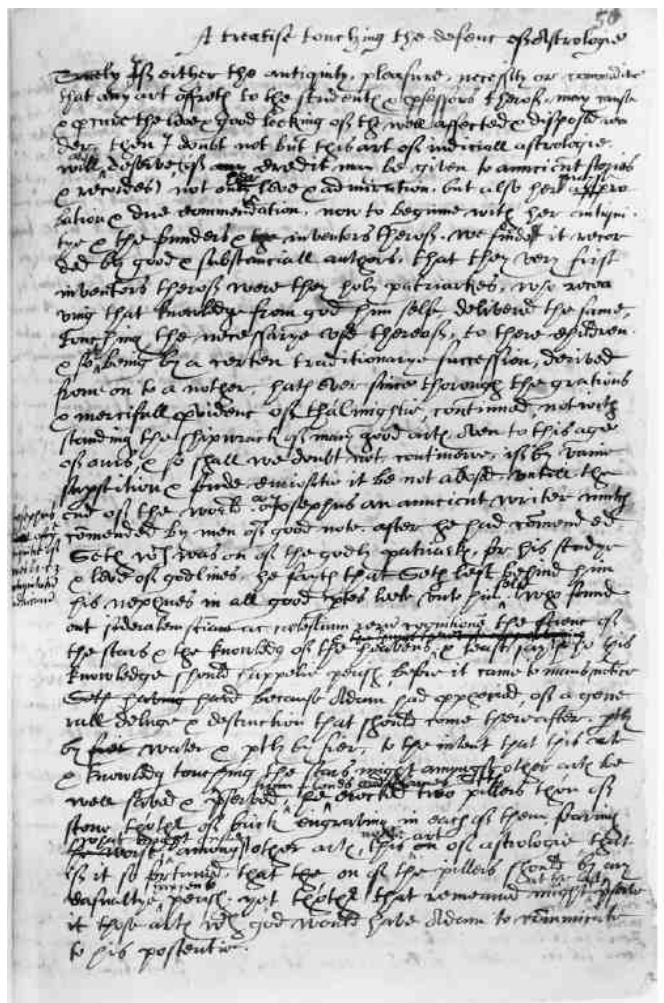 50
A treatise touching the defenc of Astrologie
Truely If either the antiquity, pleasure, necessity or commoditie
that any art offreth to the students & professors therof, may
& the love & good lecking of the well affected & disposed rea
der, then I doubt not but this art of iudiciall astrologie
will deserve (if any credit may be given to auncient stories
& recordes) not only love & admiration, but also her appro
bation & due commendation, now to beginne with her antiqui
tye & the funders & the inventors therof. we finde it recor
ded by good & substanciall authors, that they very first
inventors therof were they holy patriarkes, who recea
ving that knowledge from god him self, delivered the same,
touching the necessarye use thereof, to there children.
& so being by a certen traditionarye succession, derived
from on to a nother, hath ever since thorough the gratious
& mercifull providenc of thalmightie, continued, notwith
standing the shipwrack of many good arts, even to this age
of ours, & so shall we doubt not continewe, if by vaine
superstition & fonde curiositie it be not abused, untill the
end of the world. Josephus an auncient writer much
comended by men of good note, after he had comended
Seth wch was on of the godly patriarks, for his studye
& love of godlines, he sayth that Seth left behind him
his nephues in all good like unto him self, who found
out sideralem scientiam ac celestium rerum cognitionem the scienc of
the stars & the knowledg of the heavens, & least his
knowledge should happelie perish, before it came to mans notice
Seth having hard because Adam had of a gene
rall deluge & destruction that should come thereafter, ptly
by fier water & ptly by fier, to the intent that this art
& knowledg touching the stars might amongst other arts be
well saved & preserved, he erected two pillers thon of
stone thother of brick engraving in each of them
among other arts, this on of astrologie that
if it so fortuned, that the on of the pillers should by any
casualtye perish, yet thother that remeaned might preserve
it those arts wch god would have Adam to comunicate
to his posteritie.
Josephus